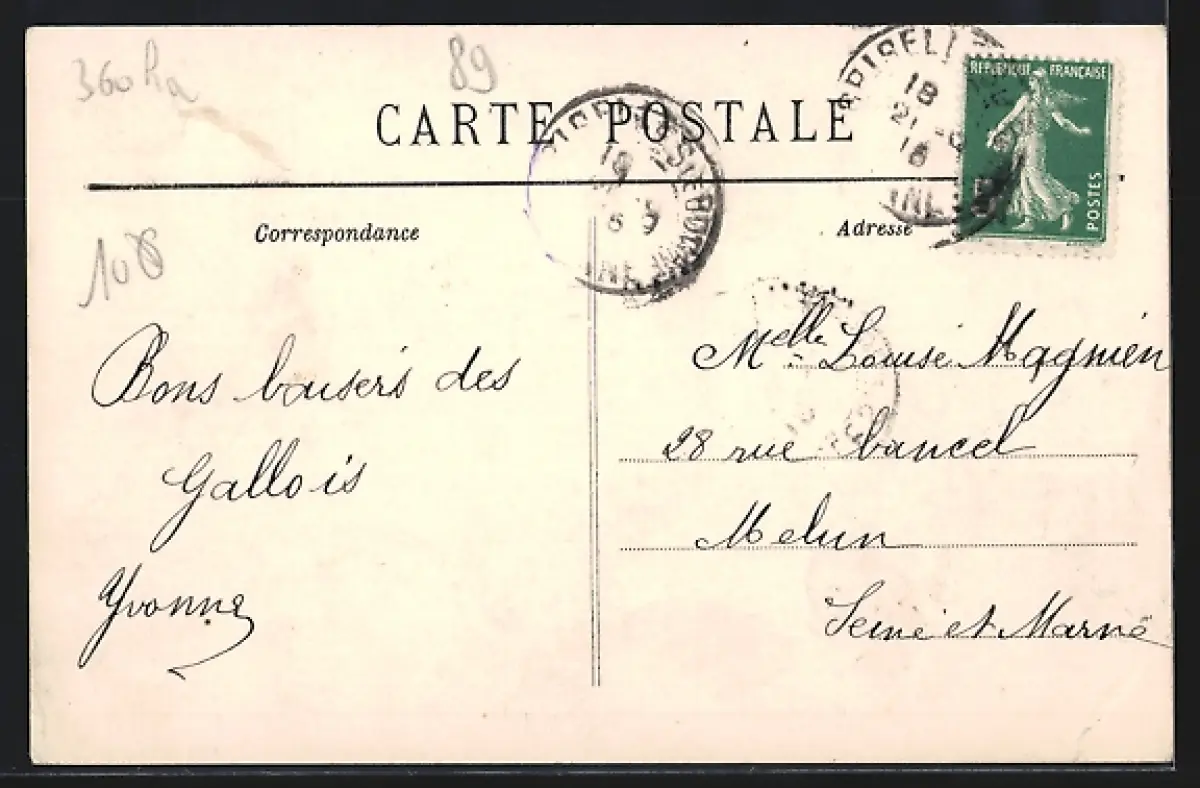 360 ha
89
CARTE POSTALE
REPUBLIQUE FRANÇAISE
POSTES
18
21
Correspondance
Adresse
108
Bons baisers des
Gallois
Yvonne
Melle Louise Magnien
28 rue bancel
Melun
Seine et Marne